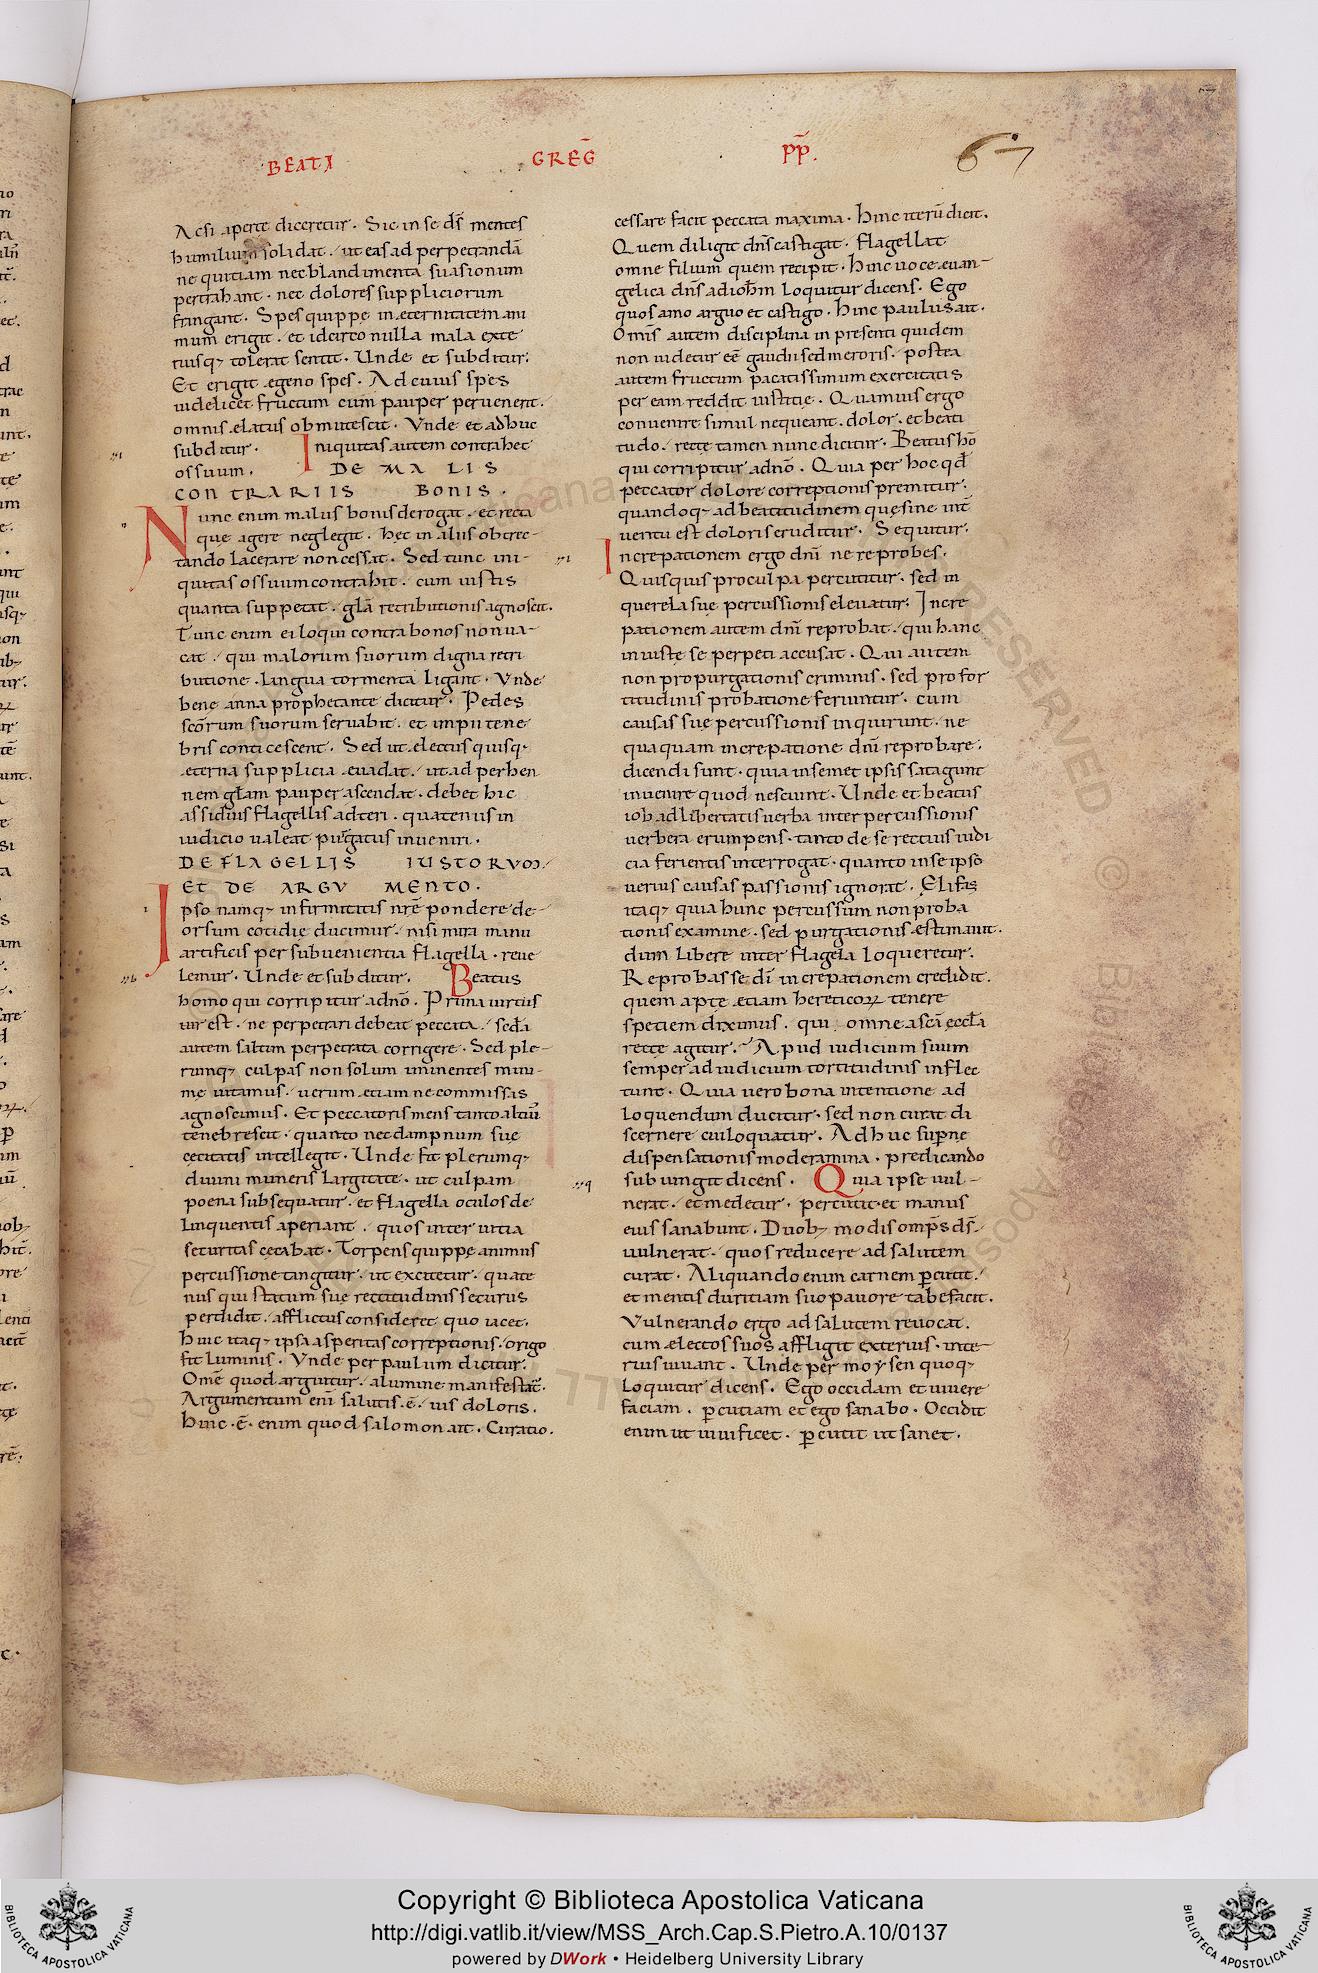 BEATI GREḠ PP̄.
67
Acsi aperte diceretur. Sic in se ds̄ mentes
humilium solidat. ut eas ad perpetrandā
nequitiam nec blandimenta suasionum
pertrahant. nec dolores suppliciorum
frangant. Spes quippe in ęternitatem ani
mum erigit. et idcirco nulla mala exte
rius q; tolerat sentit. Unde et subditur;
Et erit egeno spes. Ad cuius spes
uidelicet fructum cum pauper peruenerit.
omnis elatus obmutescit. Unde et adhuc
subditur. Iniquitas autem contrahet
os suum. DE MALIS
CONTRARIIS BONIS.
Nunc enim malus bonis derogat. et recta
que agere neglegit. hęc in aliis obtrec-
tando lacerare non cessat. Sed tunc ini-
quitas os suum contrahit. cum iustis
quanta suppetat. glā retributionis agnoscit.
Tunc enim ei loqui contra bonos non ua-
cat. qui malorum suorum digna retri
butione. lingua tormenta ligant. Unde
bene anna prophetante dicitur. Pedes
scōrum suorum seruabit. et impii tene
bris conticescent. Sed ut electus quisq;
ęterna supplicia euadat. ut ad perhen
nem glām pauper ascendat. debet hic
assiduis flagellis adteri. quatenus in
iudicio ualeat purgatus inueniri.
DE FLAGELLIS IUSTORUM.
ET DE ARGUMENTO.
Ipso namq; infirmitatis nrē pondere de-
orsum cotidie ducimur. nisi mira manu
artificis per subuenientia flagella. reue
lemur. Unde et subditur. Beatus
homo qui corripitur a dn̄o. Prima uirtus
ne perpetrari debeat peccata. scda
autem saltim perpetrata corrigere. Sed ple-
rumq; culpas non solum iminentes mini-
me uitamus. uerum etiam ne commissas
agnoscimus. Et peccatoris mens tanto altiū
tenebrescit. quanto nec dampnum sue
cęcitatis intellegit. Unde fit plerumq;
diuini muneris largitate. ut culpam
poena subsequatur. et flagella oculos de
linquentis aperiant. quos inter uitia
securitas cecabat. Torpens quippe animus
percussione tangitur. ut excitetur. quate
nus qui statum sue rectitudinis securus
perdidit. afflictus consideret quo iacet.
Hinc itaq; ipsa asperitas correptionis. origo
fit luminis. Unde per paulum dicitur.
Omē quod arguitur. a lumine manifestat̄.
Argumentum eni salutis .ē. uis doloris.
Hinc .ē. enim quod salomon ait. Curatio.
cessare facit peccata maxima. Hinc iterū dicit.
Quem diligit dn̄s castigat. Flagellat
omne filium quem recipit. Hinc uoce euan-
gelica dn̄s ad iohm̄ loquitur dicens. Ego
quos amo arguo et castigo. Hinc paulus ait.
Omīs autem disciplina in presenti quidem
non uidetur eē gaudii sed meroris. postea
autem fructum pacatissimum exercitatis
per eam reddit iustitię. Quamuis ergo
conuenire simul nequeant. dolor. et beati
tudo. recte tamen nunc dicitur. Beatus hō
qui corripitur a dn̄o. Quia per hoc qd̄
peccator dolore correptionis premitur.
quandoq; ad beatitudinem que sine int̄
uentu est doloris eruditur. Sequitur.
Increpationem ergo dn̄i ne reprobes.
Quisquis pro culpa percutitur. sed in
querela sue percussionis eleuatur; Incre
pationem autem dn̄i reprobat. qui hanc
iniuste se perpeti accusat. Qui autem
non pro purgationis criminis. sed pro for
titudinis probatione feriuntur. cum
causas sue percussionis inquirunt. ne
quaquam increpatione dn̄i reprobare.
dicendi sunt. quia in semet ipsis satagunt
inuenire quod nesciunt. Unde et beatus
iob ad libertatis uerba inter percussionis
uerbera erumpens. tanto de se rectius iudi
cia ferientis interrogat. quanto in se ipso
uerius causas passionis ignorat. Elifas
itaq; quia hunc percussum non proba
tionis examine. sed purgationis estimauit.
dum libere inter flagella loqueretur.
Reprobasse dī increpationem credidit.
quem apte etiam hereticoꝝ tenere
speciem diximus. qui omne a scā ecclā
recte agitur. Apud iudicium suum
semper ad iudicium tortitudinis inflec
tunt. Quia uero bona intentione ad
loquendum ducitur. sed non curat di
scernere cui loquatur. Adhuc supne
dispensationis moderamina. predicando
subiungit dicens. Quia ipse uul-
nerat. et medetur. percutit et manus
eius sanabunt. Duob; modis omp̄s ds̄.
uulnerat. quos reducere ad salutem
curat. Aliquando enim carnem ꝑcutit.
et mentis duritiam suo pauore tabefacit.
Vulnerando ergo ad salutem reuocat.
cum electos suos affligit exterius. inte
rius uiuant. Unde per moysen quoq;
loquitur dicens. Ego occidam et uiuere
faciam. ꝑcutiam et ego sanabo. Occidit
enim ut uiuificet. ꝑcutit ut sanet.
Copyright © Biblioteca Apostolica Vaticana
http://digi.vatlib.it/view/MSS_Arch.Cap.S.Pietro.A.10/0137
powered by DWork • Heidelberg University Library
BIBLIOTECA APOSTOLICA VATICANA
BIBLIOTECA APOSTOLICA VATICANA